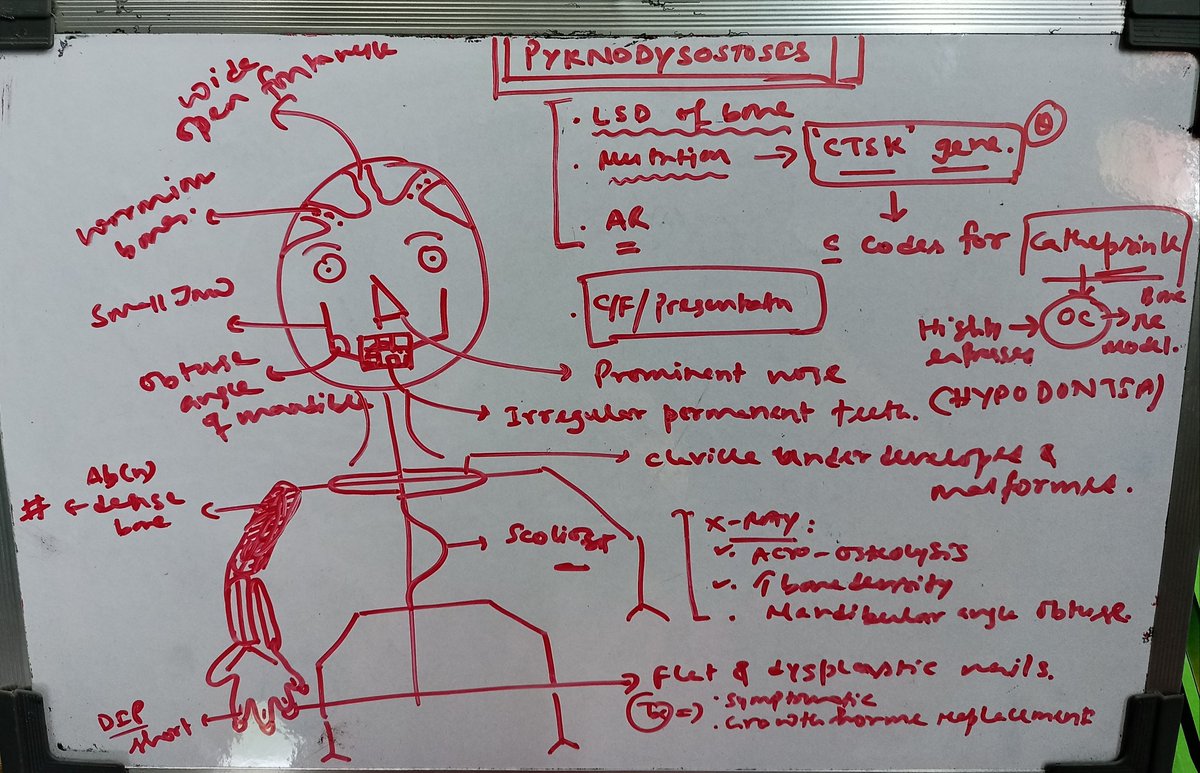 PYKNODYSOSTOSES
. LSD of bone
. Mutation → 'CTSK' gene.
. AR
codes for Cathepsin k
Highly expresses → OC → Bone remodel.
. C/F / Presentatn
wide
open fontanelle
wormian
bones.
Small Jaw
obtuse
angle
of mandible
Prominent nose
Irregular permanent teeth. (HYPODONTIA)
clavicle underdeveloped &
malformed.
Ab(n)
# ← dense
bone
Scoliosis
X-RAY:
✓. Acro-osteolysis
✓. ↑ bone density
. Mandibular angle obtuse.
DIP
short
Flat & dysplastic nails.
Tx ⇒ . symptomatic
. Growth hormone replacement